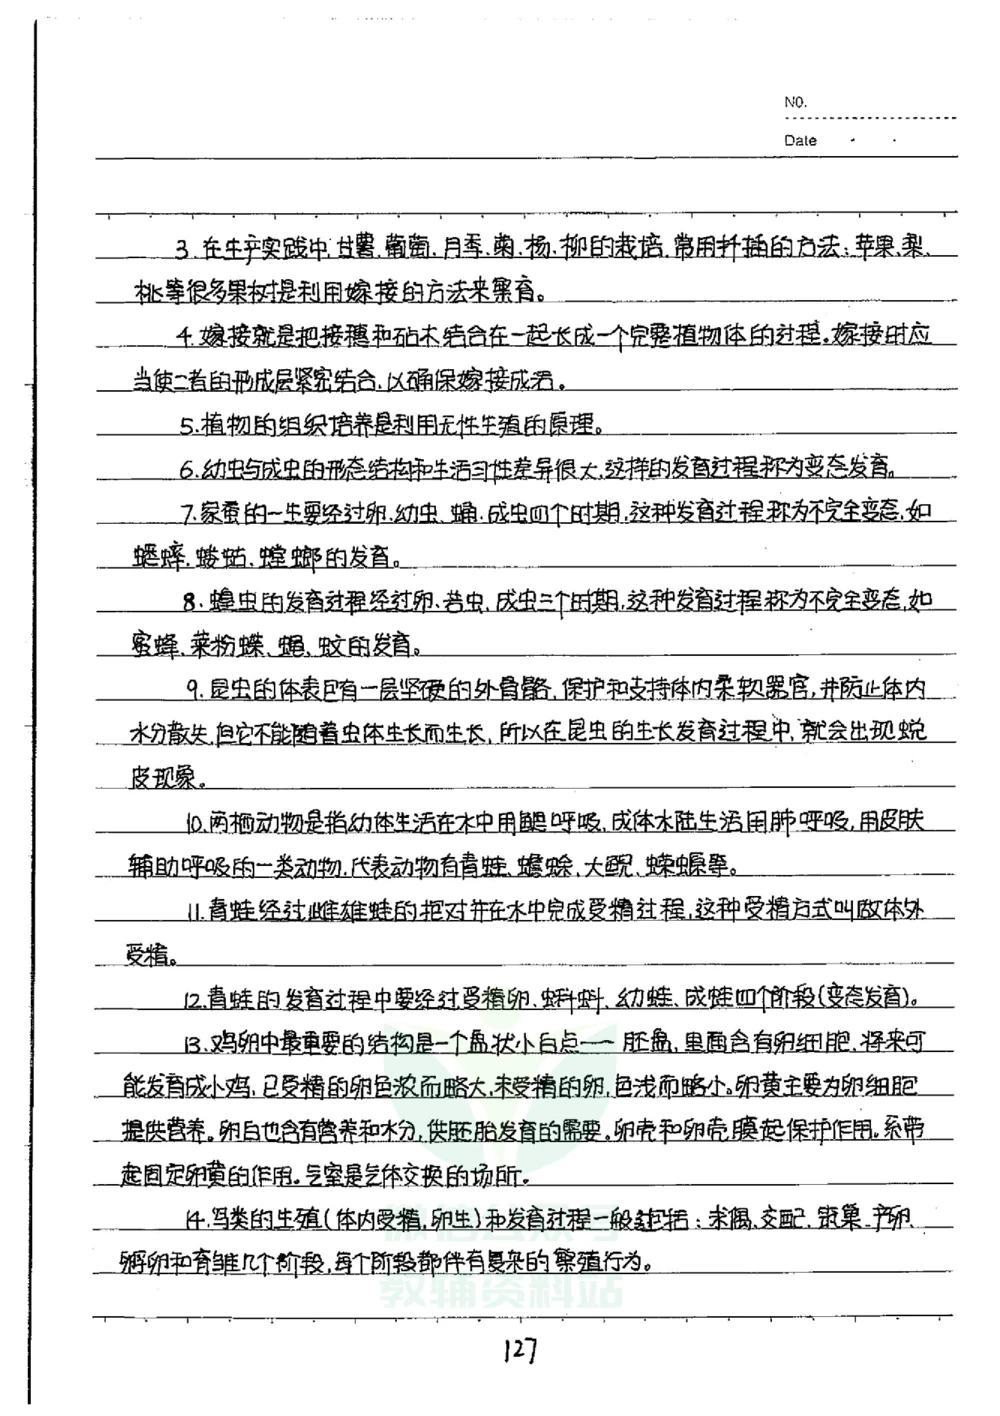 NO.
Date
3.在生产实践中,甘薯.葡萄.月季.菊.杨.柳的栽培.常用扦插的方法;苹果.梨.
桃等很多果树是利用嫁接的方法来繁育。
4.嫁接就是把接穗和砧木结合在一起长成一个完整植物体的过程.嫁接时应
当使二者的形成层紧密结合.以确保嫁接成活。
5.植物的组织培养是利用无性生殖的原理。
6.幼虫与成虫的形态结构和生活习性差异很大.这样的发育过程称为变态发育。
7.家蚕的一生要经过卵.幼虫、蛹.成虫四个时期.这种发育过程称为不完全变态.如
蟋蟀.蝼蛄.螳螂的发育。
8.蝗虫的发育过程经过卵.若虫.成虫三个时期.这种发育过程称为不完全变态.如
蜜蜂、菜粉蝶、蝇、蚊的发育。
9.昆虫的体表包有一层坚硬的外骨骼.保护和支持体内柔软器官,并防止体内
水分散失,但它不能随着虫体生长而生长,所以在昆虫的生长发育过程中,就会出现蜕
皮现象。
10.两栖动物是指幼体生活在水中用鳃呼吸,成体水陆生活用肺呼吸,用皮肤
辅助呼吸的一类动物.代表动物有青蛙、蟾蜍,大鲵、蝾螈等。
11.青蛙经过雌雄蛙的抱对并在水中完成受精过程,这种受精方式叫做体外
受精。
12.青蛙的发育过程中要经过受精卵、蝌蚪、幼蛙、成蛙四个阶段(变态发育)。
13.鸡卵中最重要的结构是一个盘状小白点——胚盘,里面含有卵细胞.将来可
能发育成小鸡,已受精的卵色浓而略大,未受精的卵,色浅而略小。卵黄主要为卵细胞
提供营养。卵白也含有营养和水分,供胚胎发育的需要。卵壳和卵壳膜起保护作用。系带
起固定卵黄的作用。气室是气体交换的场所。
14.鸟类的生殖(体内受精,卵生)和发育过程一般包括:求偶、交配、筑巢、产卵、
孵卵和育雏几个阶段,每个阶段都伴有复杂的繁殖行为。
微信公众号
教辅资料站
127